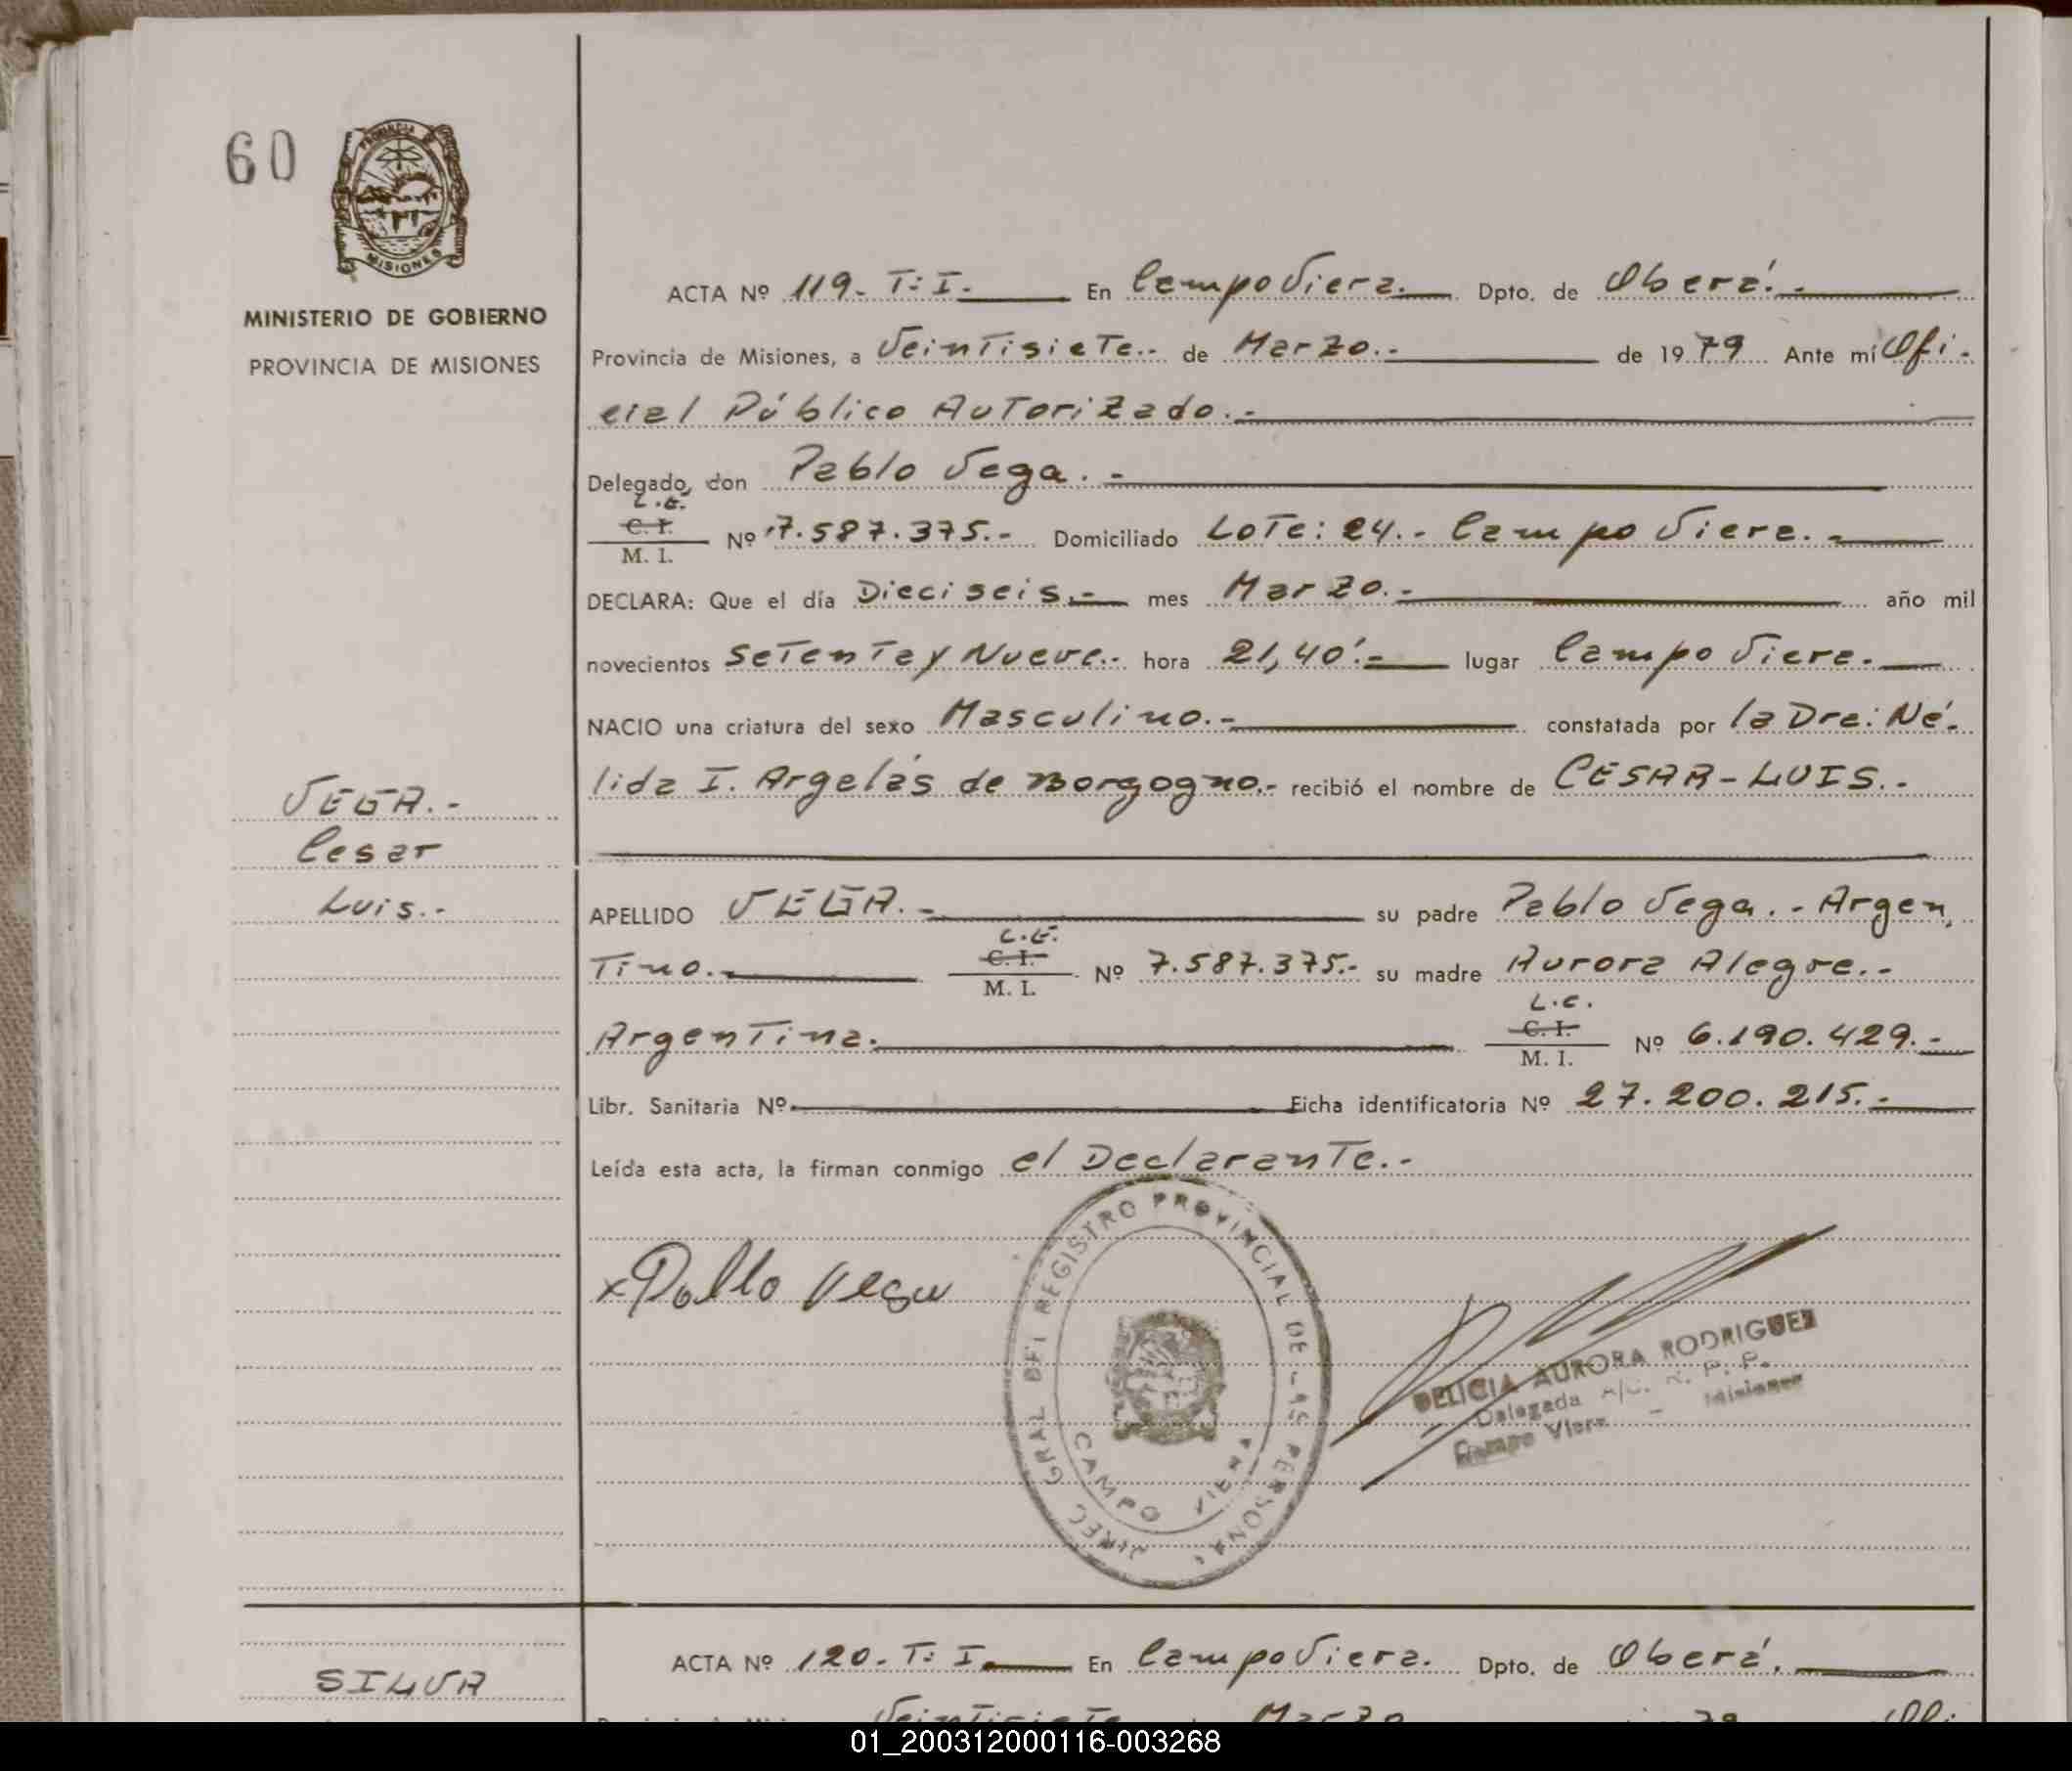 60
PROVINCIA
MISIONES
MINISTERIO DE GOBIERNO
PROVINCIA DE MISIONES
VEGA.-
Cesar
Luis.-
ACTA Nº 119.- T: I. En Campo Viera. Dpto. de Oberá.-
Provincia de Misiones, a Veintisiete.- de Marzo.- de 1979 Ante mí Ofi-
cial Público Autorizado.-
Delegado, don Pablo Vega.-
L.E.
C. I.
M. I. Nº 7.587.375.- Domiciliado Lote: 24.- Campo Viera.-
DECLARA: Que el día Dieciseis.- mes Marzo.- año mil
novecientos Setenta y Nueve.- hora 21,40'.- lugar Campo Viera.
NACIO una criatura del sexo Masculino.- constatada por la Dra: Né-
lida I. Argelás de Borgogno.- recibió el nombre de CESAR-LUIS.-
APELLIDO VEGA.- su padre Pablo Vega.- Argen,
L.E.
tino.- C. I.
M. I. Nº 7.587.375.- su madre Aurora Alegre.-
L.C.
Argentina. C. I.
M. I. Nº 6.190.429.-
Libr. Sanitaria Nº Ficha identificatoria Nº 27.200.215.-
Leída esta acta, la firman conmigo el Declarante.-
x Pablo Vega
DIREC. GRAL DEL REGISTRO PROVINCIAL DE LAS PERSONAS
CAMPO VIERA
DELICIA AURORA RODRIGUEZ
Delegada A/C. R. P. P.
Campo Viera - Misiones
SILVA
ACTA Nº 120.- T: I. En Campo Viera. Dpto. de Oberá.
Veintisiete Marzo 79 Ofi
01_200312000116-003268